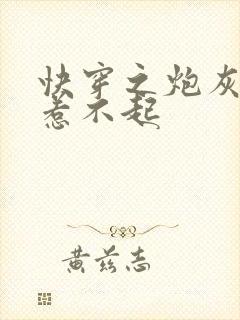 快穿之炮灰
惹不起
黄兹志